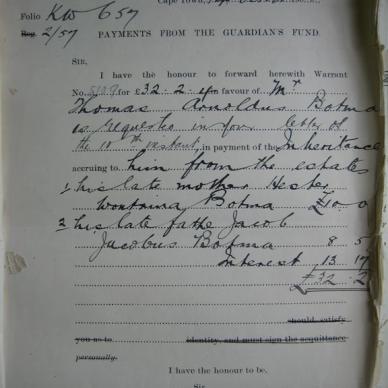 Cape Town,
Folio KW 657
Reg. 2/57 PAYMENTS FROM THE GUARDIAN'S FUND.
SIR,
I have the honour to forward herewith Warrant
No. for £32. 2. in favour of Mr
Thomas Arnoldus Botma
as requested in your letter of
the 10th instant, in payment of the Inheritance
accruing to him from the estates
1 his late mother Hester
Botma £10 0
2 his late father Jacob
Jacobus Botma 8 5
Interest 13 17
£32 2
should satisfy
you as to identity, and must sign the acquittance
personally.
I have the honour to be,
Sir